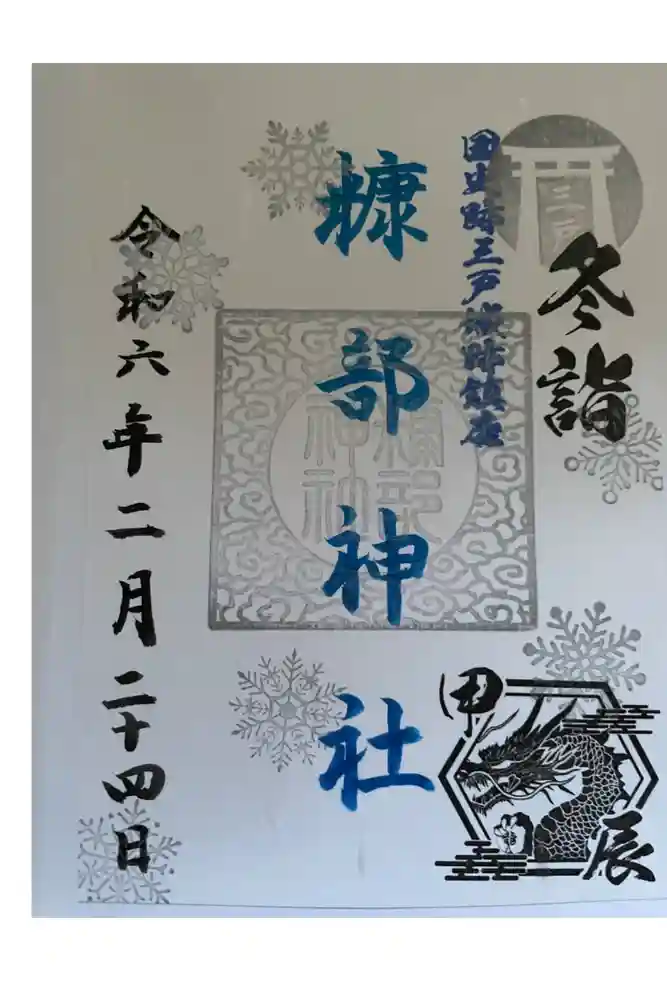 三戸
冬詣
国史跡三戸城跡鎮座
糠部神社
糠部神社
甲辰
令和六年二月二十四日